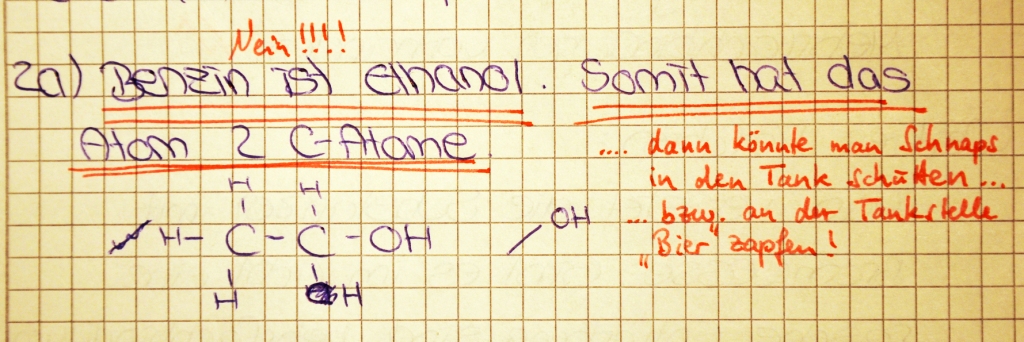 Nein !!!!
2a) Benzin ist ethanol. Somit hat das
Atom 2 C-Atome.
.... dann könnte man Schnaps
in den Tank schütten ...
... bzw. an der Tankstelle
„Bier" zapfen!
H H
H - C - C - OH
H H
OH